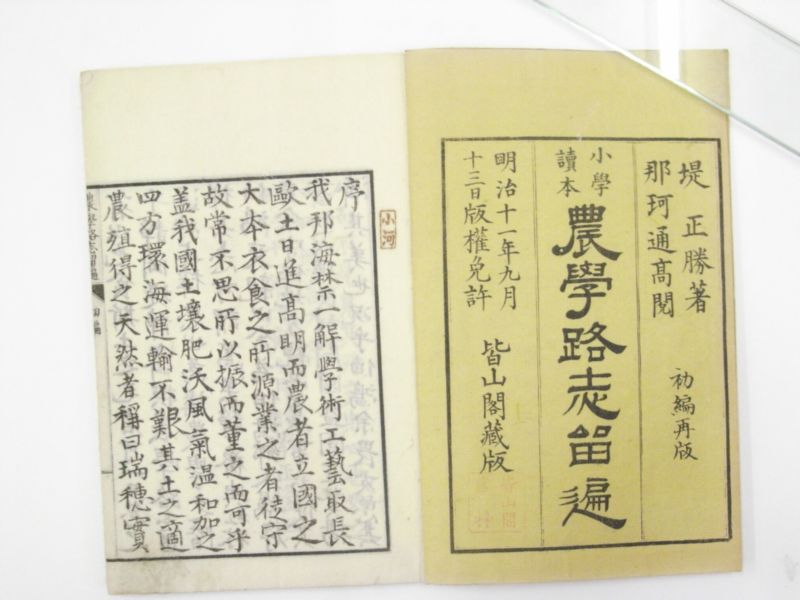 堤 正勝著
那珂通高閲
初編再版
小學
讀本
農學路志畱遍
明治十一年九月
十三日版權免許
皆山閣藏版
小河
序
我邦海禁一解學術工藝取長
歐土日進高明而農者立國之
大本衣食之所源業之者徒守
故常不思所以振而董之而可乎
蓋我國土壤肥沃風氣温和加之
四方環海運輸不艱其土之適
農殖得之天然者稱曰瑞穗實